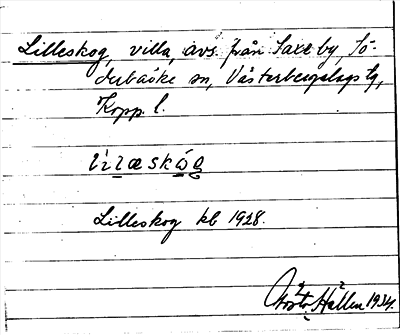 Lilleskog, villa, avs. från Saxe by, Sö-
derbärke sn, Västerbergslags tg,
Kopp. l.
Lilleskog kb 1928.
Gösta Hallén 1934.